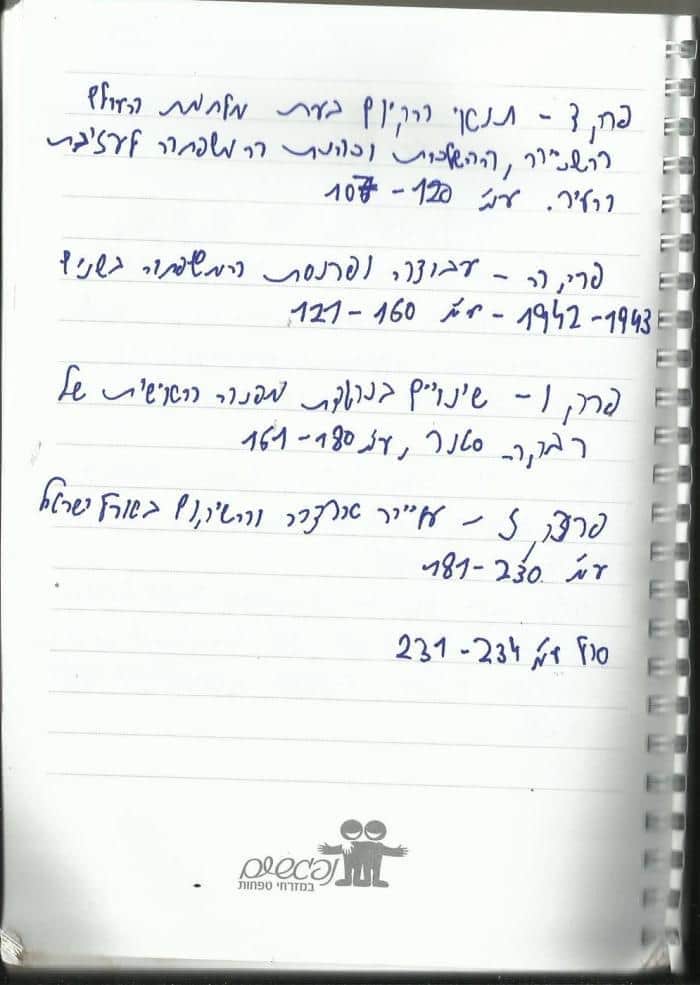 פרק ד - תנאי הקיום בעת מלחמת העולם
השנייה, ההשלכות וכוונת המשפחה לעזיבת
העיר. עמ' 107 - 120
פרק ה - עבודה ופרנסת המשפחה בשנים
1942-1943 - עמ' 121-160
פרק ו - שינויים בנקודת מפנה האישית של
רבקה סטנר, עמ' 161-180
פרק ז - עלייה ארצה והשיקום בארץ ישראל
עמ' 181-230
סוף עמ' 231-234
נפגשים
במזרחי טפחות